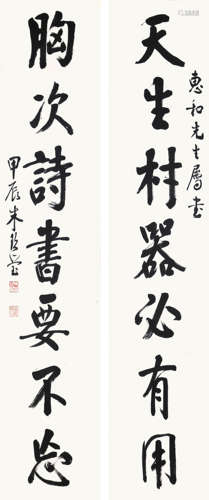 天生材器必有用
惠和先生属书
胸次詩書要不忘
甲辰朱